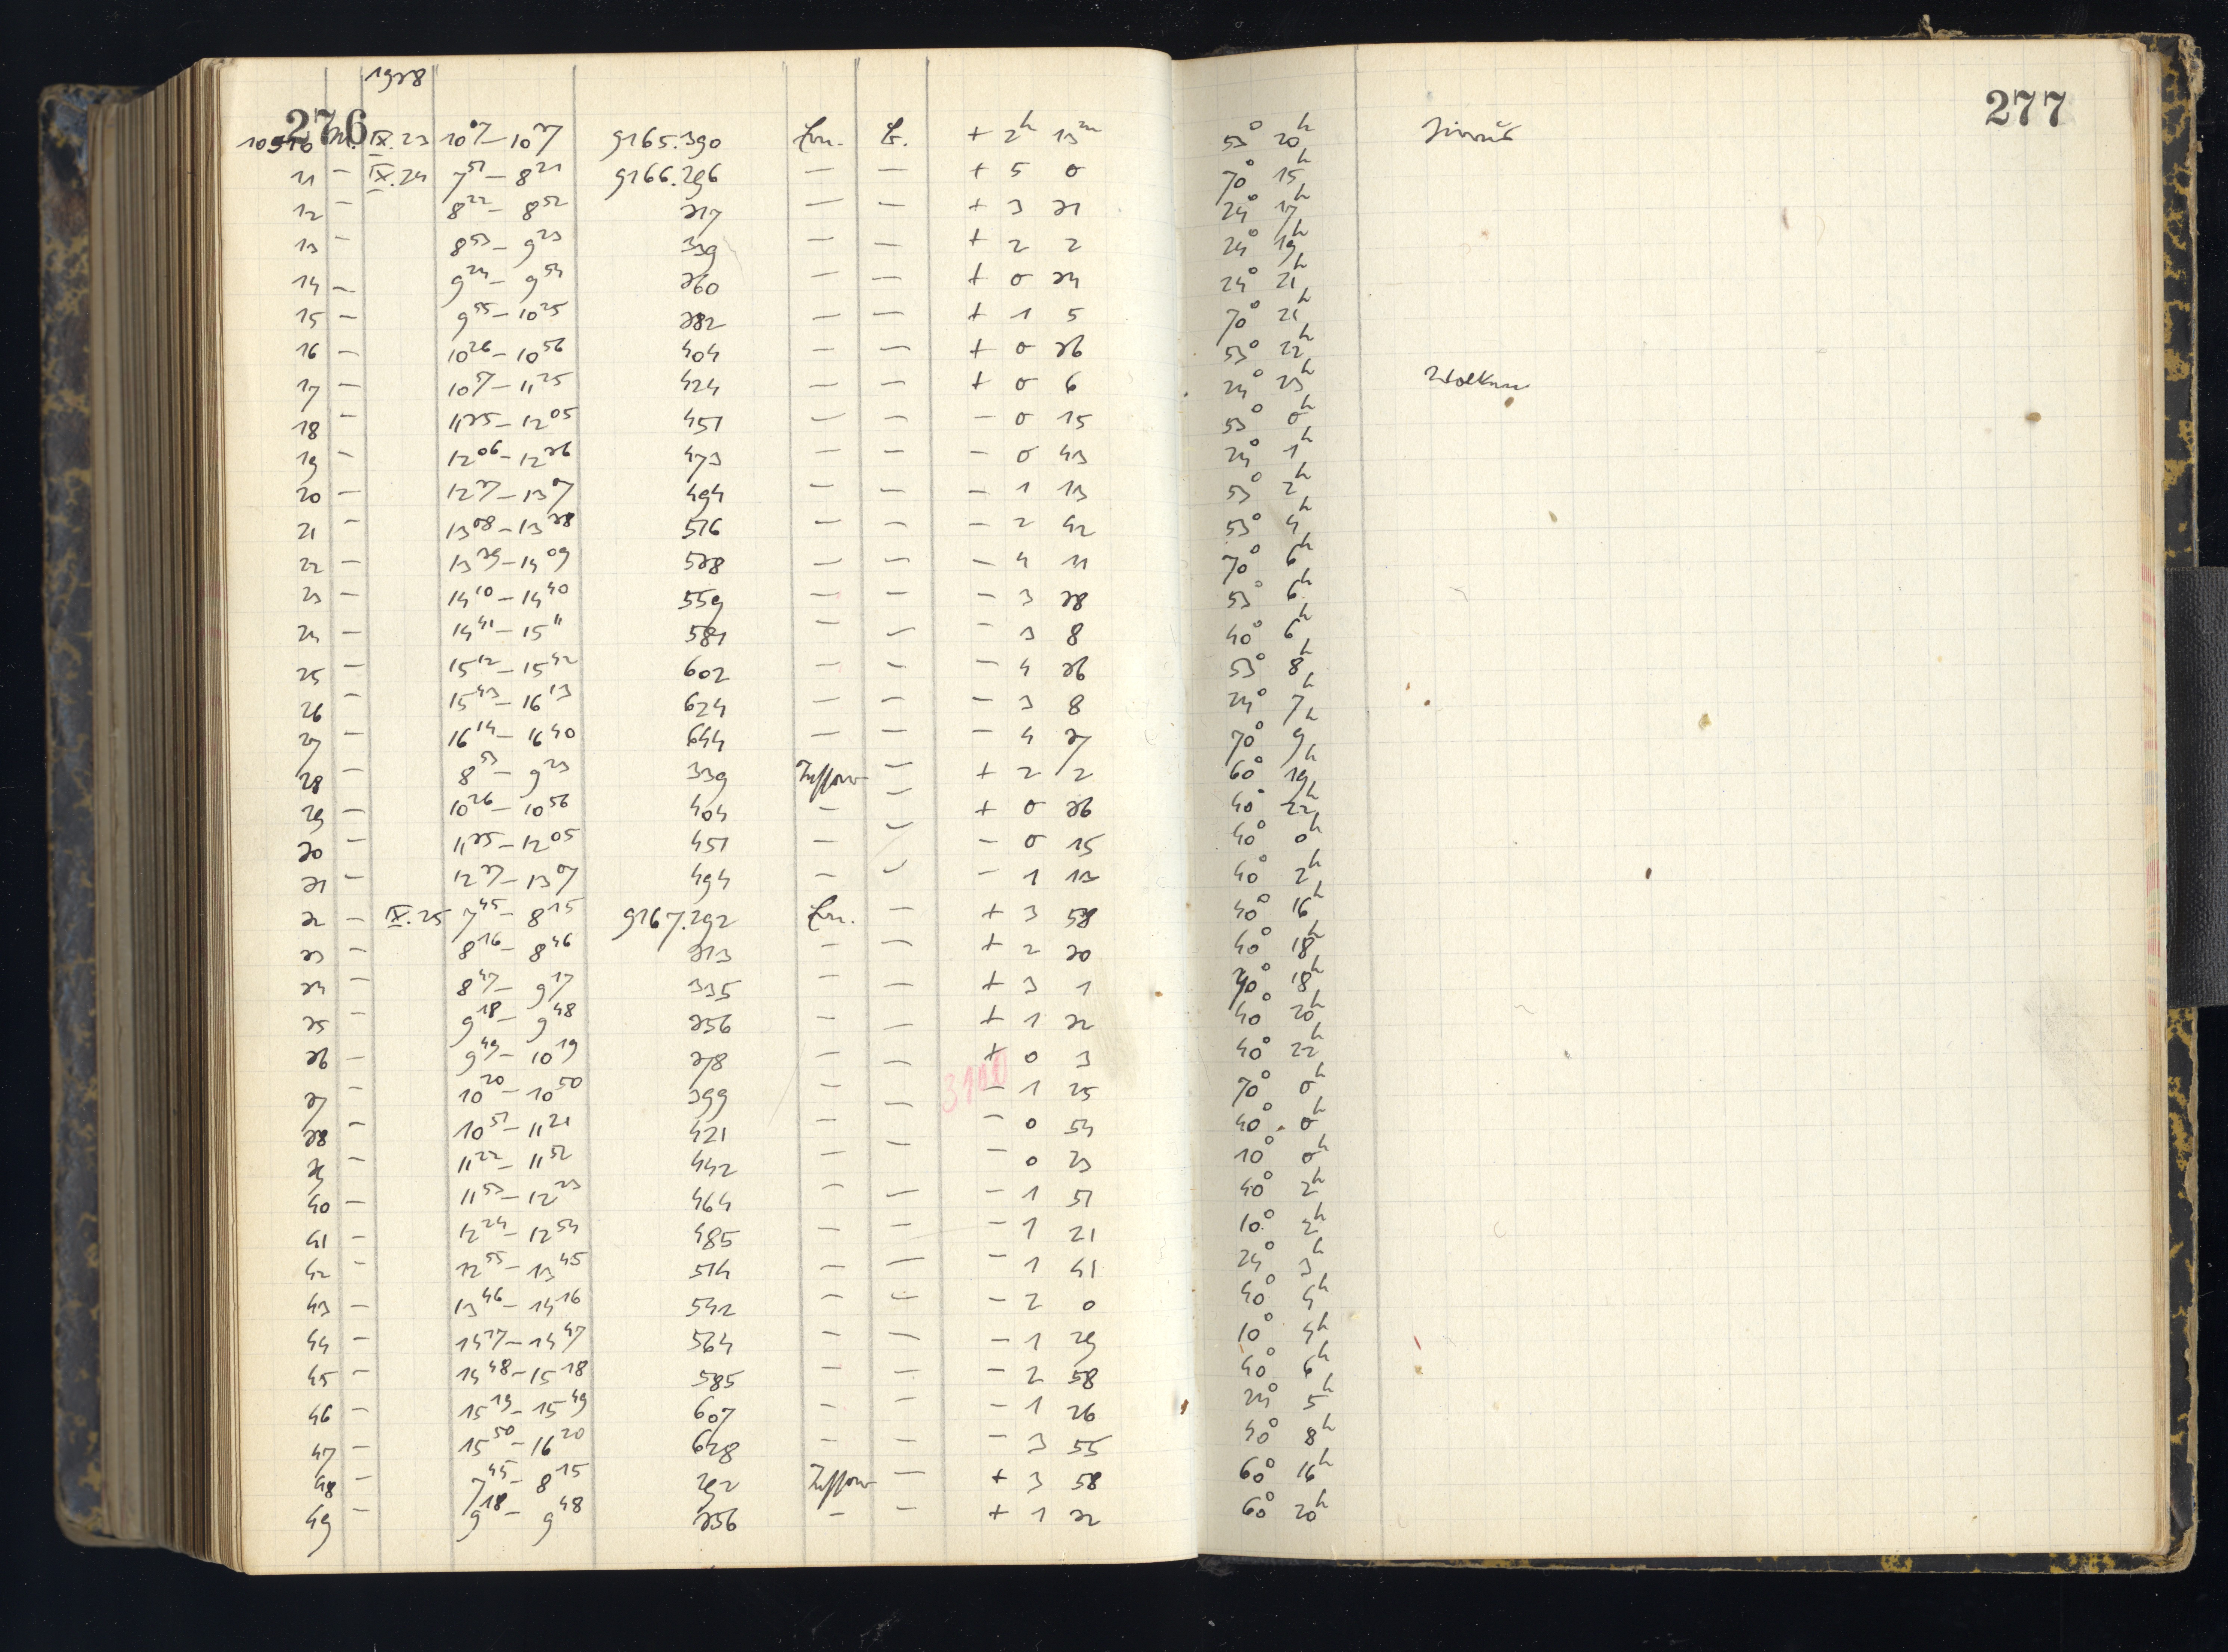 276
277
1928
10510 IX.23 10⁰⁷–10³⁷ 9165.390 + 2ʰ 13ᵐ 53° 20ʰ
11 – IX.24 7⁵¹–8²¹ 9166.296 – – + 5 0 70° 15ʰ
12 – 8²²–8⁵² 317 – – + 3 31 24° 17ʰ
13 – 8⁵³–9²³ 339 – – + 2 2 24° 19ʰ
14 – 9²⁴–9⁵⁴ 360 – – + 0 34 24° 21ʰ
15 – 9⁵⁵–10²⁵ 382 – – + 1 5 70° 21ʰ
16 – 10²⁶–10⁵⁶ 404 – – + 0 36 53° 22ʰ
17 – 10⁵⁷–11²⁵ 424 – – + 0 6 24° 23ʰ Wolken
18 – 11³⁵–12⁰⁵ 451 – – – 0 15 53° 0ʰ
19 – 12⁰⁶–12³⁶ 473 – – – 0 43 24° 1ʰ
20 – 12³⁷–13⁰⁷ 494 – – – 1 13 53° 2ʰ
21 – 13⁰⁸–13³⁸ 516 – – – 2 42 53° 4ʰ
22 – 13³⁹–14⁰⁹ 538 – – – 4 11 70° 6ʰ
23 – 14¹⁰–14⁴⁰ 559 – – – 3 38 53° 6ʰ
24 – 14⁴¹–15¹¹ 581 – – – 3 8 40° 6ʰ
25 – 15¹²–15⁴² 602 – – – 4 36 53° 8ʰ
26 – 15⁴³–16¹³ 624 – – – 3 8 24° 7ʰ
27 – 16¹⁴–16⁴⁰ 644 – – – 4 37 70° 9ʰ
28 – 8⁵³–9²³ 339 – + 2 2 60° 19ʰ
29 – 10²⁶–10⁵⁶ 404 – – + 0 36 40° 22ʰ
30 – 11³⁵–12⁰⁵ 451 – – – 0 15 40° 0ʰ
31 – 12³⁷–13⁰⁷ 494 – – – 1 13 40° 2ʰ
32 – IX.25 7⁴⁵–8¹⁵ 9167.292 – + 3 58 40° 16ʰ
33 – 8¹⁶–8⁴⁶ 313 – – + 2 30 40° 18ʰ
34 – 8⁴⁷–9¹⁷ 335 – – + 3 1 18ʰ
35 – 9¹⁸–9⁴⁸ 356 – – + 1 32 40° 20ʰ
36 – 9⁴⁹–10¹⁹ 378 – – + 0 3 40° 22ʰ
37 – 10²⁰–10⁵⁰ 399 – – – 1 25 70° 0ʰ
38 – 10⁵¹–11²¹ 421 – – – 0 54 40° 0ʰ
39 – 11²²–11⁵² 442 – – – 0 23 10° 0ʰ
40 – 11⁵³–12²³ 464 – – – 1 51 40° 2ʰ
41 – 12²⁴–12⁵⁴ 485 – – – 1 21 10° 2ʰ
42 – 12⁵⁵–13⁴⁵ 514 – – – 1 41 24° 3ʰ
43 – 13⁴⁶–14¹⁶ 542 – – – 2 0 40° 4ʰ
44 – 14¹⁷–14⁴⁷ 564 – – – 1 29 10° 4ʰ
45 – 14⁴⁸–15¹⁸ 585 – – – 2 58 40° 6ʰ
46 – 15¹⁹–15⁴⁹ 607 – – – 1 26 24° 5ʰ
47 – 15⁵⁰–16²⁰ 628 – – – 3 55 40° 8ʰ
48 – 7⁴⁵–8¹⁵ 292 – + 3 58 60° 16ʰ
49 – 9¹⁸–9⁴⁸ 356 – – + 1 32 60° 20ʰ